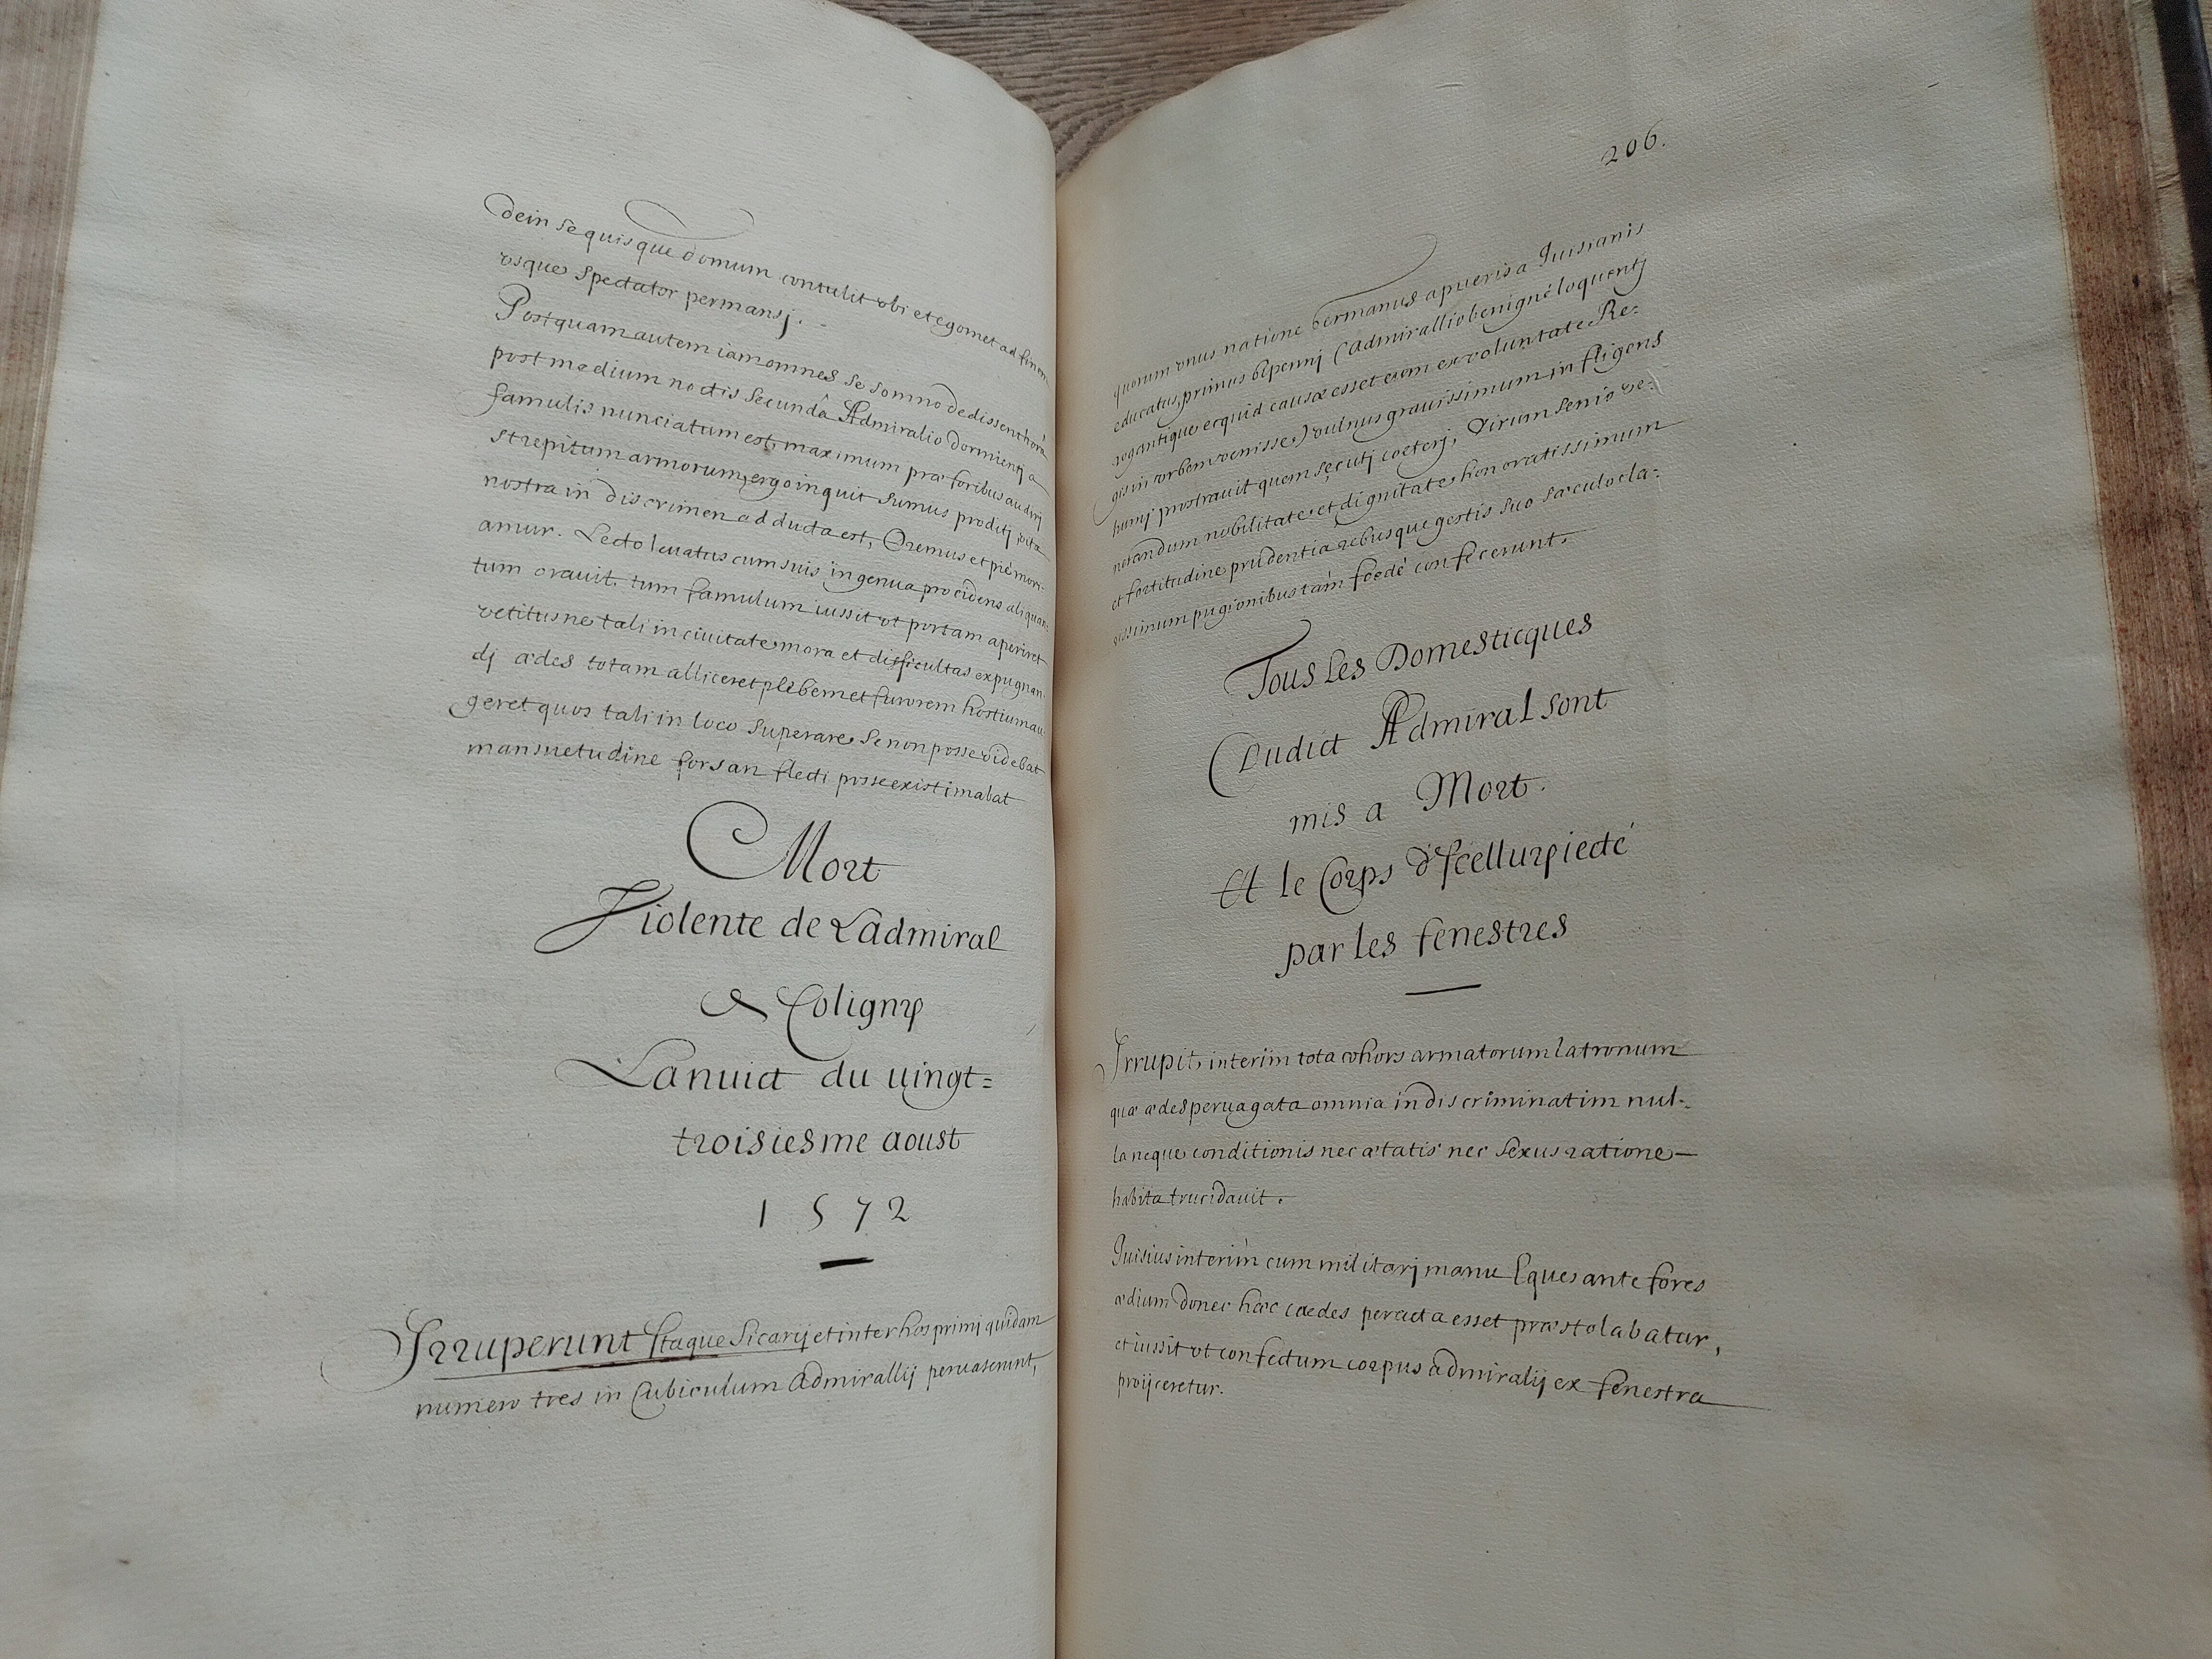 dein se quisque domum contulit vbi et egomet ad finem
vsque spectator permansj.
Postquam autem iam omnes se somno dedissent hora
post medium noctis secundâ Admiralio dormientj a
famulis nunciatum est, maximum præ foribus audirj
strepitum armorum, ergo inquit sumus proditj vita
nostra in discrimen adducta est, Oremus et pié mori-
amur. Lecto leuatus cum suis in genua procidens aliquan-
tum orauit. tum famulum iussit vt portam aperiret
vetitus ne tali in ciuitate mora et difficultas expugnan-
dj ædes totam alliceret plebem et furorem hostium au-
geret quos tali in loco superare se non posse videbat
mansuetudine forsan flecti posse existimabat
Mort
Violente de Ladmiral
Coligny
La nuict du uingt=
troisiesme aoust
1572
Irruperunt Itaque Sicarij et inter hos primj quidam
numero tres in Cubiculum Admirallij peruaserunt,
206.
quorum vnus natione Germanus a pueris a Guisianis
educatus, primus bipennj (Admirallio benigné loquentj
rogantique ecquid causæ esset eum ex voluntate Re=
gis in vrbem venisse) vulnus grauissimum infligens
humj prostrauit quem secutj coeterj, virum senio ve=
nerandum nobilitate et dignitate honoratissimum
et fortitudine prudentia rebusque gestis suo sæculo cla=
rissimum pugionibus tam foedé confecerunt.
Tous Les Domesticques
Dudict Admiral sont
mis a Mort.
Et le Corps d'Icelluy iecté
par les fenestres
Irrupit interim tota cohors armatorum latronum
quæ ædes peruagata omnia indiscriminatim nul-
la neque conditionis nec ætatis nec sexus ratione
habita trucidauit.
Guisius interim cum militarj manu Eques ante fores
ædium donec hæc cædes peracta esset præstolabatur,
et iussit vt confectum corpus admiralij ex fenestra
proijceretur.